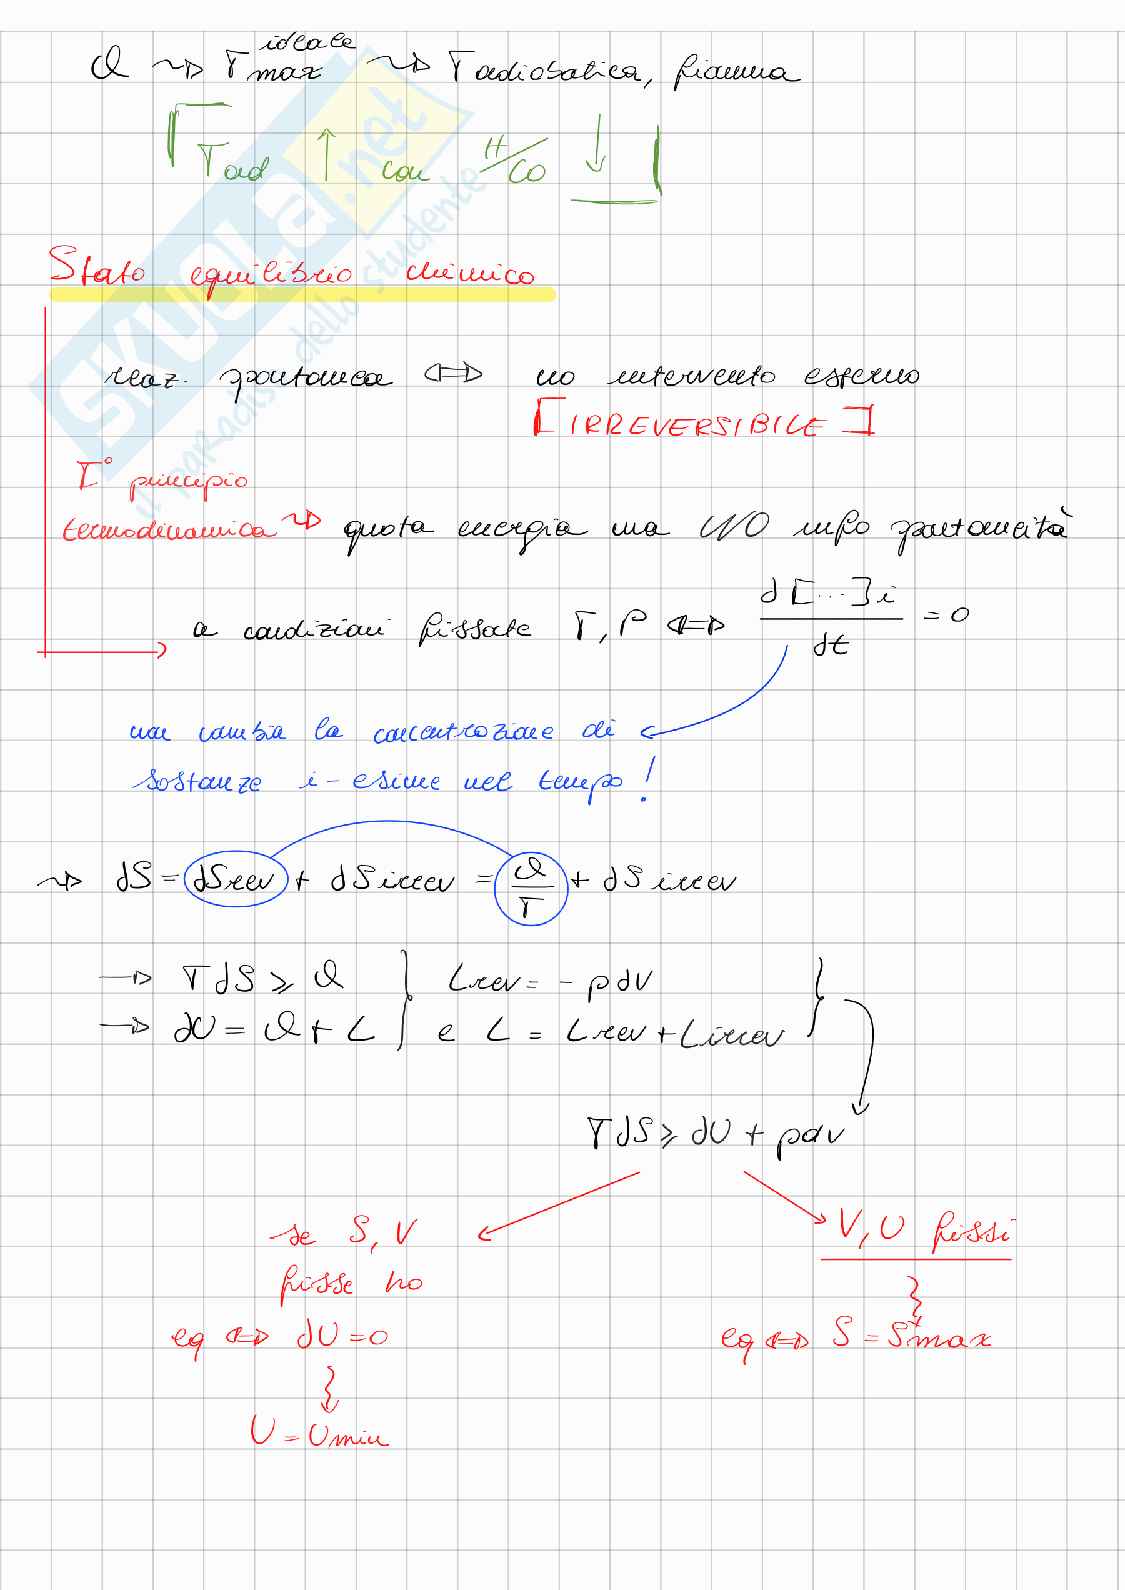 Q ⇝ T max ideale ⇝ T adiabatica, fiamma
Tad ↑ con H/CO ↓
Stato equilibrio chimico
reaz. spontanea ⇔ no intervento esterno
[IRREVERSIBILE]
I° principio
termodinamica ⇝ quota energia ma NO info spontaneità
a condizioni fissate T, P ⇔ d[...]i / dt = 0
non cambia la concentrazione di
sostanze i-esime nel tempo!
⇝ dS = dSrev + dSirrev = Q/T + dSirrev
→ TdS ⩾ Q } Lrev = - pdV }
→ dU = Q + L } e L = Lrev + Lirrev }
TdS ⩾ dU + pdv
se S, V
fisse ho
eq ⇔ dU = 0
U = Umin
V, U fissi
eq ⇔ S = Smax
SKUOLA.net
il paradiso dello studente